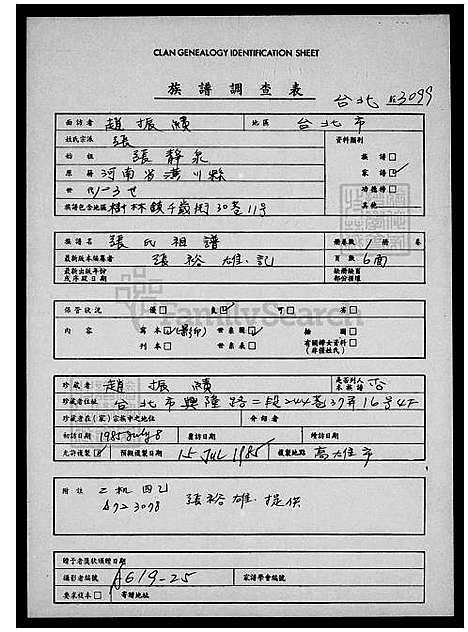 CLAN GENEALOGY IDENTIFICATION SHEET
族譜調查表
台北 3099
面訪者 趙振績 地區 台北市
姓氏宗派 張 資料類別
始祖 張靜泉 族譜□
原籍 河南省潢川縣 家譜☑
世代 1-3世 功德榜□
族譜包含地區 樹林鎮千歲街30巷11号 其他
族譜名 張氏祖譜 冊卷數 1 冊 卷
最新版本編纂者 張裕雄.記 頁數 6面
最新出版年份或序跋日期 缺冊缺頁部份損壞
保管狀況 優□ 良☑ 可□ 劣□
內容 寫本☑(影印) 世系圖☑ 插圖□
刊本□ 世系表□ 有關婦女資料(非僅姓氏)□
珍藏者 趙振績 是否列入本族譜 否
珍藏者住址 台北市興隆路二段244巷37弄16号4F
珍藏者在(家)宗族中之地位 介紹者
初訪日期 1985 July 8 重訪日期 續訪日期
允許複製 預拟複製日期 15 JUL 1985 複製地點 高雄市
附註 二机四乙
A723078 張裕雄.提供
贈予者獎狀頒贈日期
攝影者編號 A619-25 家譜學會編號
要求複本□ 寄贈地址
FamilySearch